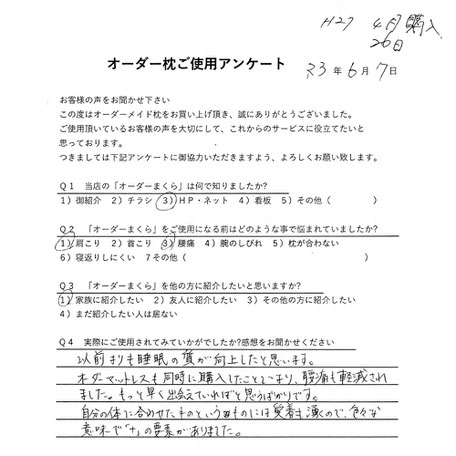 H27 4月 購入
26日
オーダー枕ご使用アンケート
R3 年 6 月 7 日
お客様の声をお聞かせ下さい
この度はオーダーメイド枕をお買い上げ頂き、誠にありがとうございました。
ご使用頂いているお客様の声を大切にして、これからのサービスに役立てたいと
思っております。
つきましては下記アンケートに御協力いただきますよう、よろしくお願い致します。
Q1 当店の「オーダーまくら」は何で知りましたか?
1）御紹介 2）チラシ 3）HP・ネット 4）看板 5）その他（ ）
Q2 「オーダーまくら」をご使用になる前はどのような事で悩まれていましたか?
1）肩こり 2）首こり 3）腰痛 4）腕のしびれ 5）枕が合わない
6）寝返りしにくい 7その他（ ）
Q3 「オーダーまくら」を他の方に紹介したいと思いますか?
1）家族に紹介したい 2）友人に紹介したい 3）その他の方に紹介したい
4）まだ紹介したい人は居ない
Q4 実際にご使用されてみていかがでしたか?感想をお聞かせください
以前よりも睡眠の質が向上したと思います。
オーダーマットレスも同時に購入したことにより、腰痛も軽減され
ました。もっと早く出会えていればと思うばかりです。
自分の体に合わせたものというものには愛着も湧くので、色々な
意味で「+」の要素がありました。